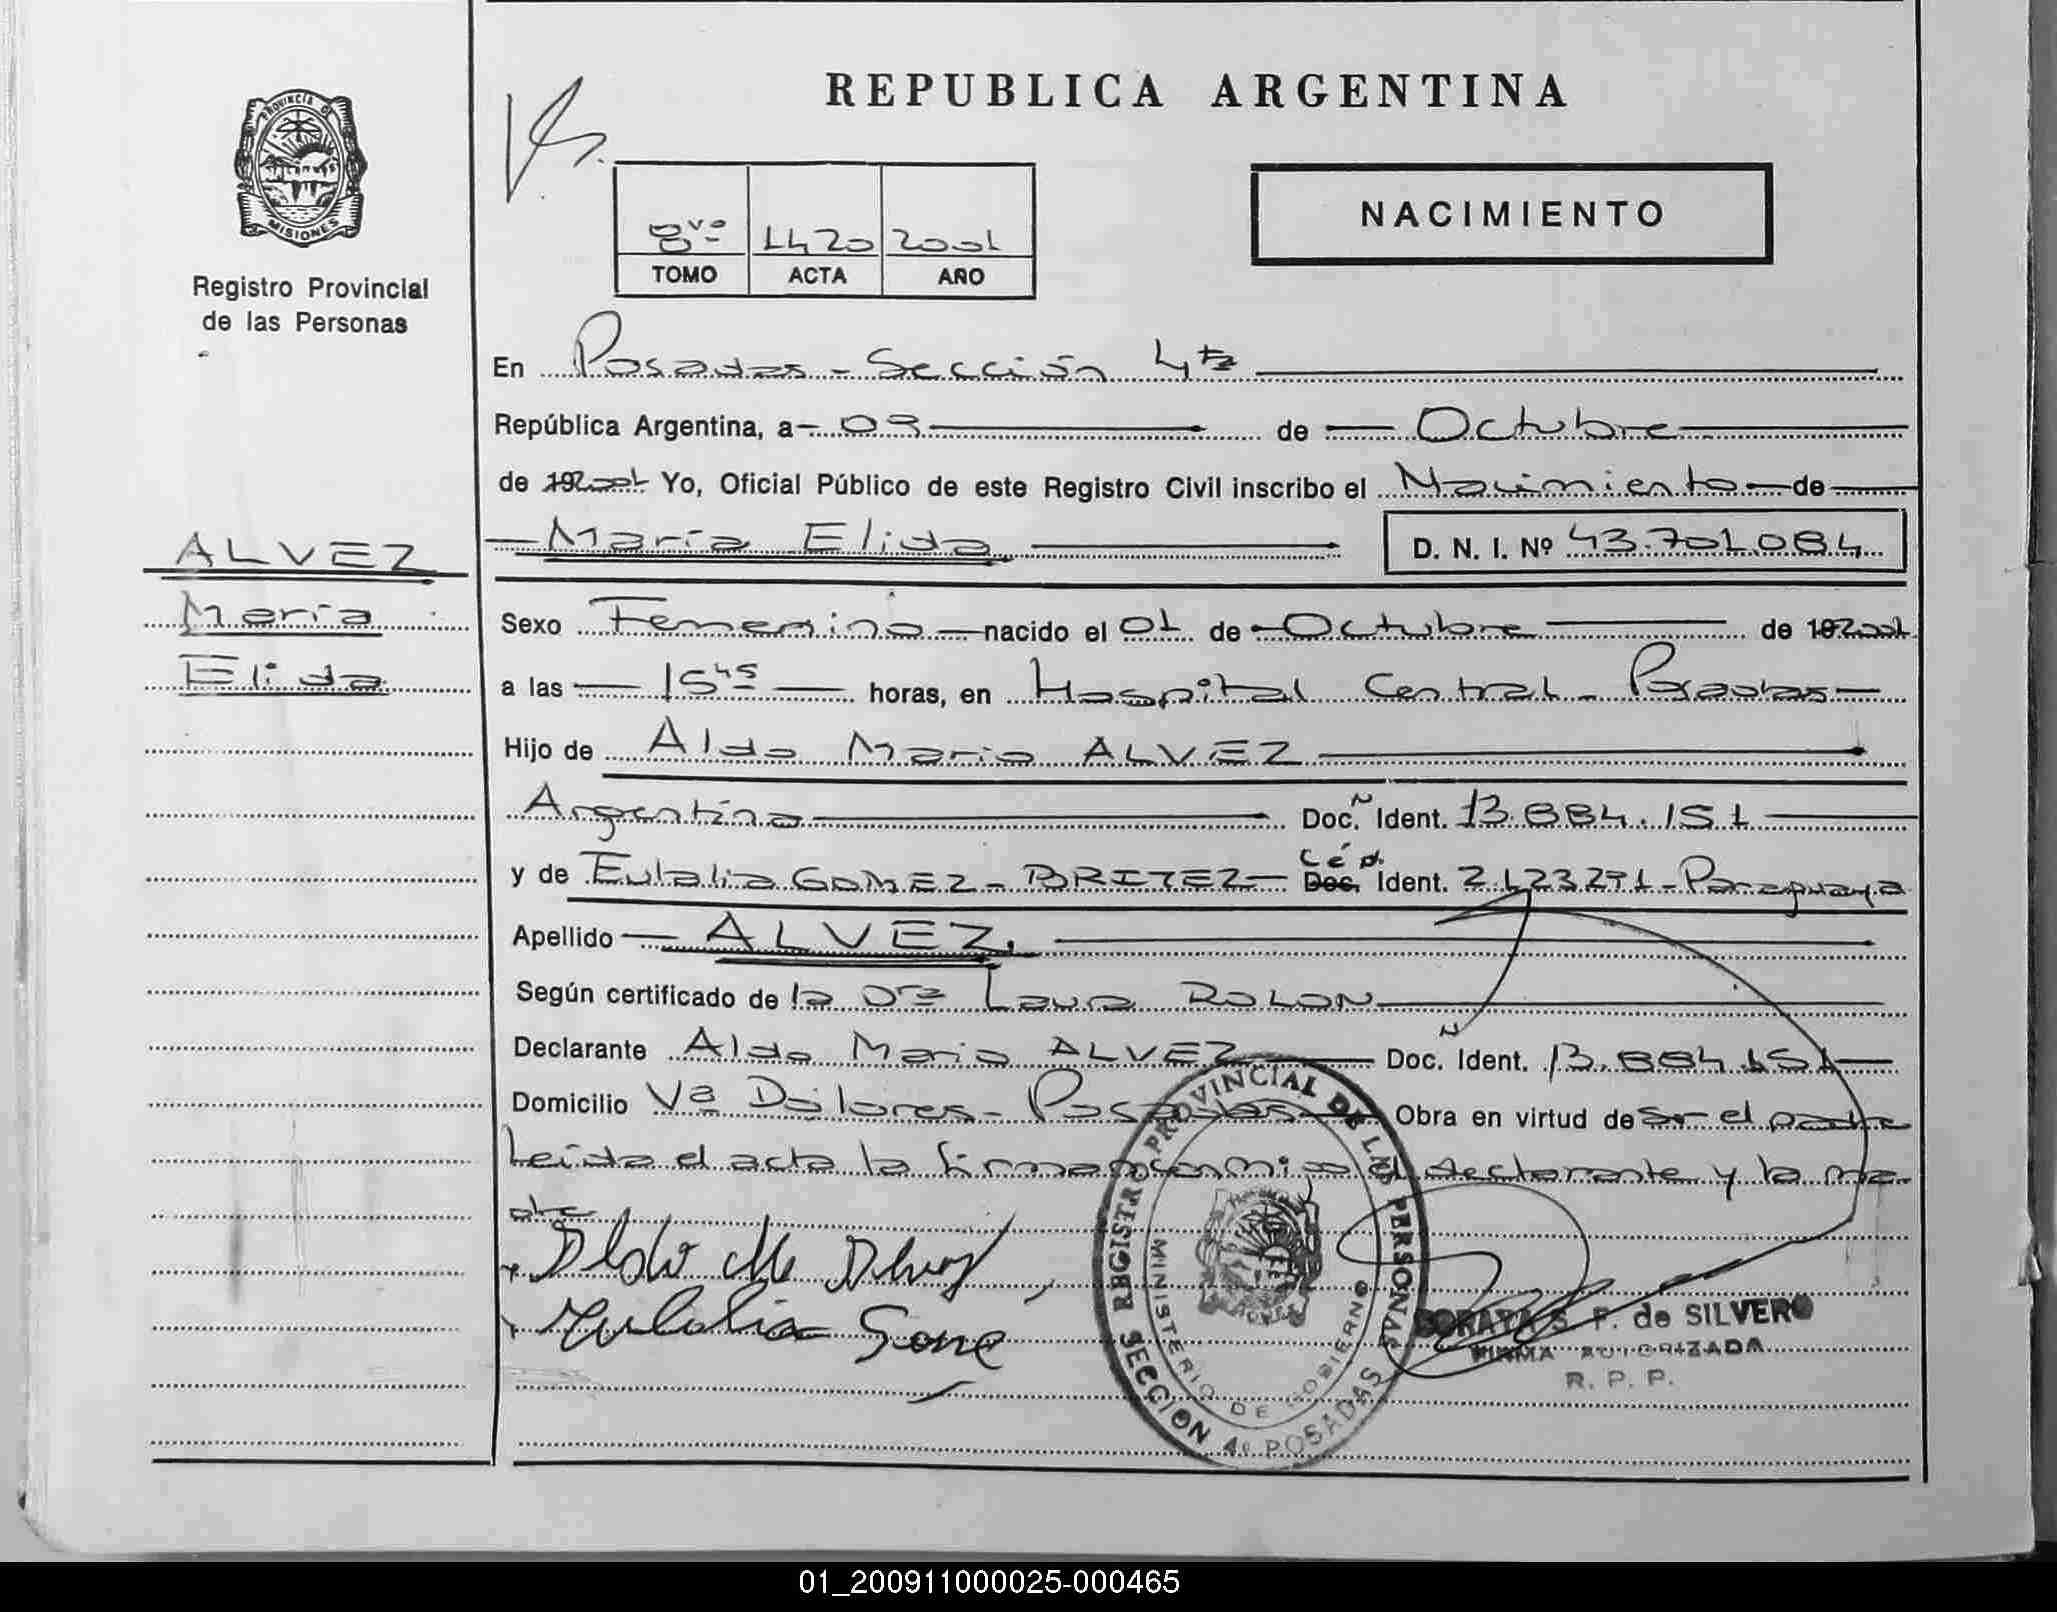 REPUBLICA ARGENTINA
PROVINCIA DE
MISIONES
Registro Provincial
de las Personas
NACIMIENTO
8vo 1420 2001
TOMO ACTA AÑO
En Posadas - Sección 4ta
República Argentina, a 03 de Octubre
de 192001 Yo, Oficial Público de este Registro Civil inscribo el Nacimiento de
ALVEZ
María Elida
D. N. I. Nº 43.701.084
María
Elida
Sexo Femenino nacido el 01 de Octubre de 192001
a las 15 45 horas, en Hospital Central - Posadas
Hijo de Aldo Mario ALVEZ
Argentino Doc. Ident. N 13.884.151
y de Eulalia GOMEZ - BRITEZ Doc. Céd. Ident. 2.123.291 - Paraguaya
Apellido ALVEZ
Según certificado de la Dra Laura ROLON
Declarante Aldo Mario ALVEZ Doc. N Ident. 13.884.151
Domicilio Va Dolores - Posadas Obra en virtud de Ser el padre
Leída el acta la firman conmigo el declarante y la ma-
dre
Aldo M Alvez
Eulalia Gome
REGISTRO PROVINCIAL DE LAS PERSONAS
MINISTERIO DE GOBIERNO
SECCION 4º POSADAS
SORAYA S. F. de SILVERO
FIRMA AUTORIZADA
R. P. P.
01_200911000025-000465